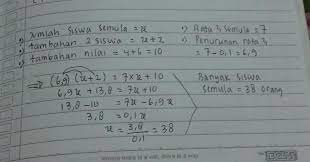 Jumlah siswa semula = x
tambahan 2 siswa = x + 2
tambahan nilai = 4 + 6 = 10
Rata² semula = 7
Penurunan rata²
= 7 - 0,1 = 6,9
(6,9) (x+2) = 7x + 10
6,9x + 13,8 = 7x + 10
13,8 - 10 = 7x - 6,9x
3,8 = 0,1x
x = 3,8/0,1 = 38
Banyak siswa
semula = 38 orang